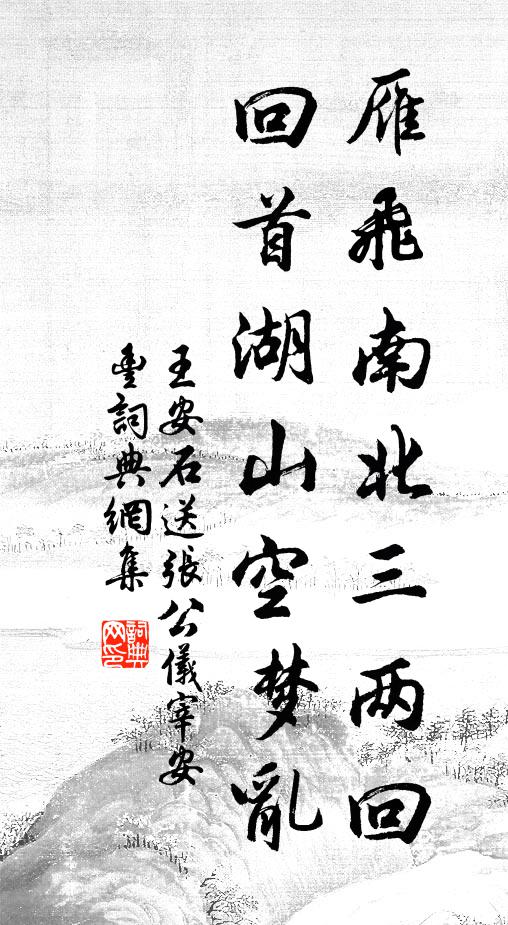 雁飛南北三两回
回首湖山空梦亂
王安石送張公儀宰安
豊詞典網集
詞典网印